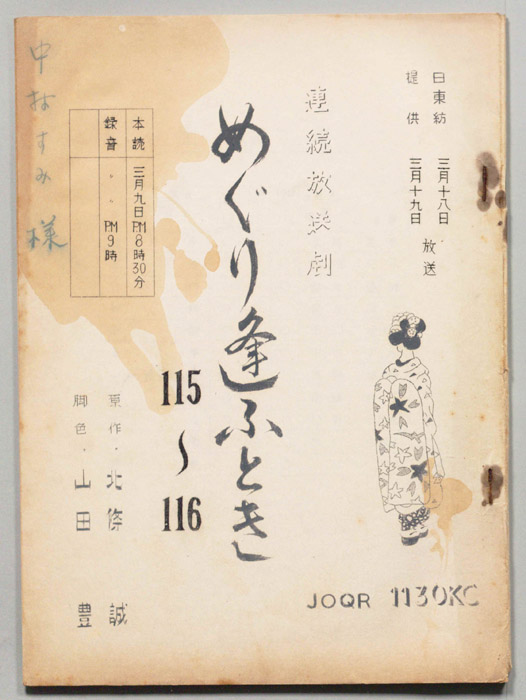 日東紡
提供
三月十八日
三月十九日
放送
連続放送劇
めぐり逢ふとき
115～116
本読 三月九日PM8時30分
録音 〃 〃 PM9時
原作・北條 誠
脚色・山田 豊
中村すみ様
JOQR 1130KC